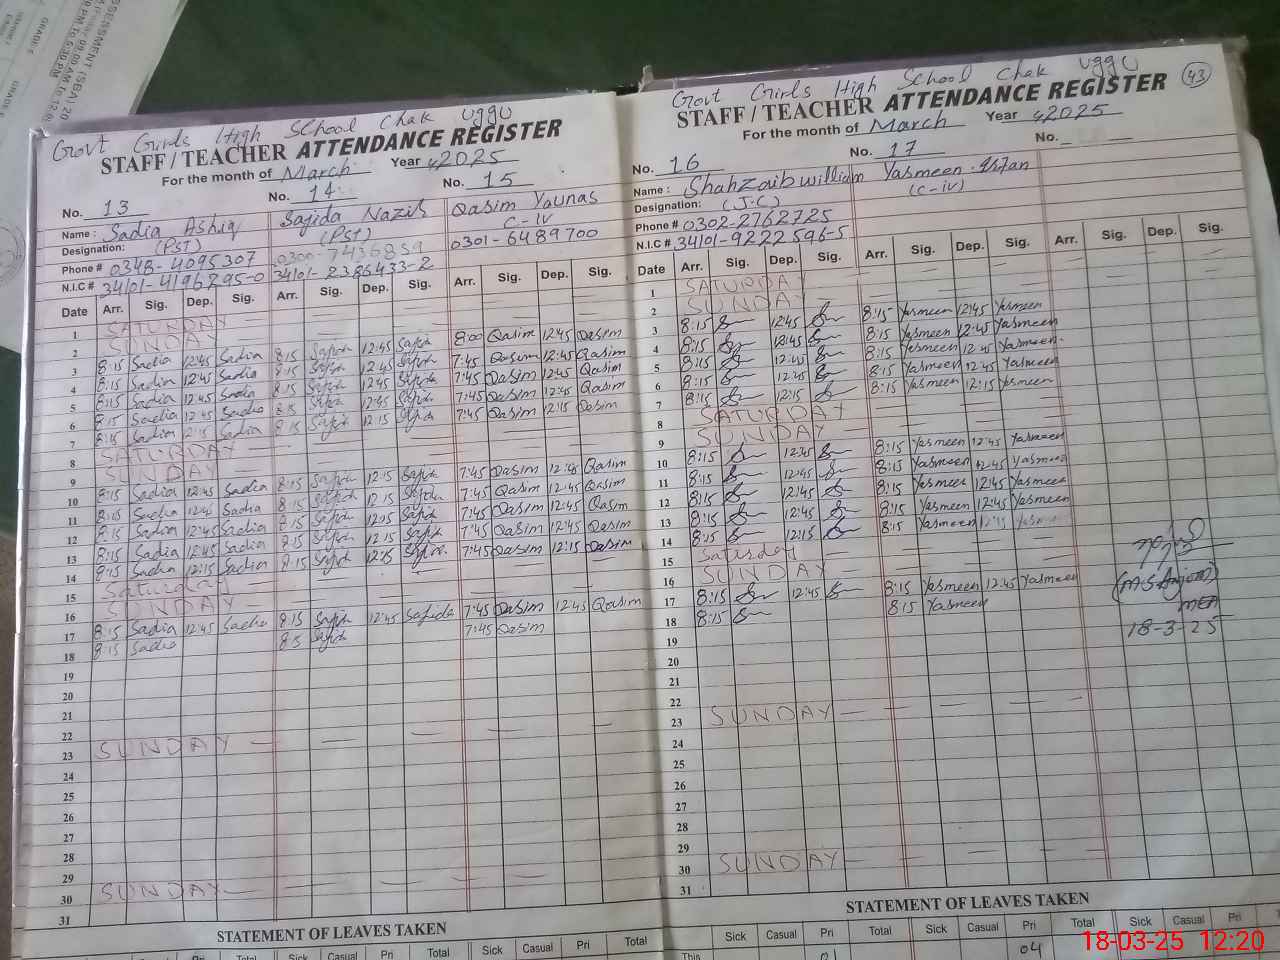 Govt Girls High School Chak Uggu
STAFF / TEACHER ATTENDANCE REGISTER
For the month of March Year 2025
No. 13 No. 14 No. 15
Name : Sadia Ashiq Sajida Nazir Qasim Younas
Designation: (PST) (PST) C-iv
Phone # 0348-4095307 0300-7436859 0301-6489700
N.I.C # 34101-4196295-0 34101-2386433-2
Date Arr. Sig. Dep. Sig. Arr. Sig. Dep. Sig. Arr. Sig. Dep. Sig.
1 SATURDAY
2 SUNDAY
3 8:15 Sadia 12:45 Sadia 8:15 12:45 8:00 Qasim 12:45 Qasim
4 8:15 Sadia 12:45 Sadia 8:15 12:45 7:45 Qasim 12:45 Qasim
5 8:15 Sadia 12:45 Sadia 8:15 12:45 7:45 Qasim 12:45 Qasim
6 8:15 Sadia 12:45 Sadia 8:15 12:45 7:45 Qasim 12:45 Qasim
7 8:15 Sadia 12:15 Sadia 8:15 12:15 7:45 Qasim 12:15 Qasim
8 SATURDAY
9 SUNDAY
10 8:15 Sadia 12:45 Sadia 8:15 12:15 7:45 Qasim 12:45 Qasim
11 8:15 Sadia 12:45 Sadia 8:15 12:15 7:45 Qasim 12:45 Qasim
12 8:15 Sadia 12:45 Sadia 8:15 12:15 7:45 Qasim 12:45 Qasim
13 8:15 Sadia 12:45 Sadia 8:15 12:15 7:45 Qasim 12:45 Qasim
14 8:15 Sadia 12:15 Sadia 8:15 12:15 7:45 Qasim 12:15 Qasim
15 Saturday
16 SUNDAY
17 8:15 Sadia 12:45 Sadia 8:15 12:45 Sajida 7:45 Qasim 12:45 Qasim
18 8:15 Sadia 8:15 7:45 Qasim
19
20
21
22
23 SUNDAY
24
25
26
27
28
29
30 SUNDAY
31
STATEMENT OF LEAVES TAKEN
Sick Casual Pri Total Sick Casual Pri Total
Govt Girls High School Chak Uggu 43
STAFF / TEACHER ATTENDANCE REGISTER
For the month of March Year 2025
No. 16 No. 17 No.
Name : Shahzaib william Yasmeen Irfan
Designation: (J.C) (C-iv)
Phone # 0302-2762725
N.I.C # 34101-9222596-5
Date Arr. Sig. Dep. Sig. Arr. Sig. Dep. Sig. Arr. Sig. Dep. Sig.
1 SATURDAY
2 SUNDAY
3 8:15 12:45 8:15 Yasmeen 12:45 Yasmeen
4 8:15 12:45 8:15 Yasmeen 12:45 Yasmeen
5 8:15 12:45 8:15 Yasmeen 12:45 Yasmeen
6 8:15 12:45 8:15 Yasmeen 12:45 Yasmeen
7 8:15 12:15 8:15 Yasmeen 12:15 Yasmeen
8 SATURDAY
9 SUNDAY
10 8:15 12:45 8:15 Yasmeen 12:45 Yasmeen
11 8:15 12:45 8:15 Yasmeen 12:45 Yasmeen
12 8:15 12:45 8:15 Yasmeen 12:45 Yasmeen
13 8:15 12:45 8:15 Yasmeen 12:45 Yasmeen
14 8:15 12:15 8:15 Yasmeen 12:15 Yasmeen
15 Saturday
16 SUNDAY
17 8:15 12:45 8:15 Yasmeen 12:45 Yasmeen
18 8:15 8:15 Yasmeen
19
20
21
22
23 SUNDAY
24
25
26
27
28
29
30 SUNDAY
31
MEA
18-3-25
STATEMENT OF LEAVES TAKEN
Sick Casual Pri Total Sick Casual Pri Total Sick Casual Pri
This 01 04
18-03-25 12:20